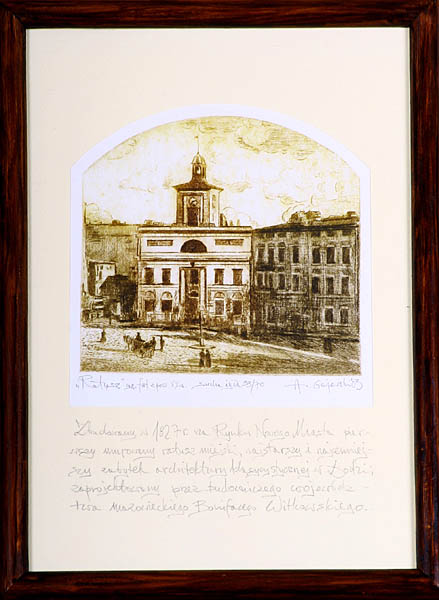 "Ratusz" sucha igła 39/70 A.
Zbudowany w 1827r. na Rynku Nowego Miasta pier-
wszy murowany ratusz miejski, najstarszy i najcenniej-
szy zabytek architektury klasycystycznej w Łodzi,
zaprojektowany przez budowniczego województ-
twa mazowieckiego Bonifacego Witkowskiego.